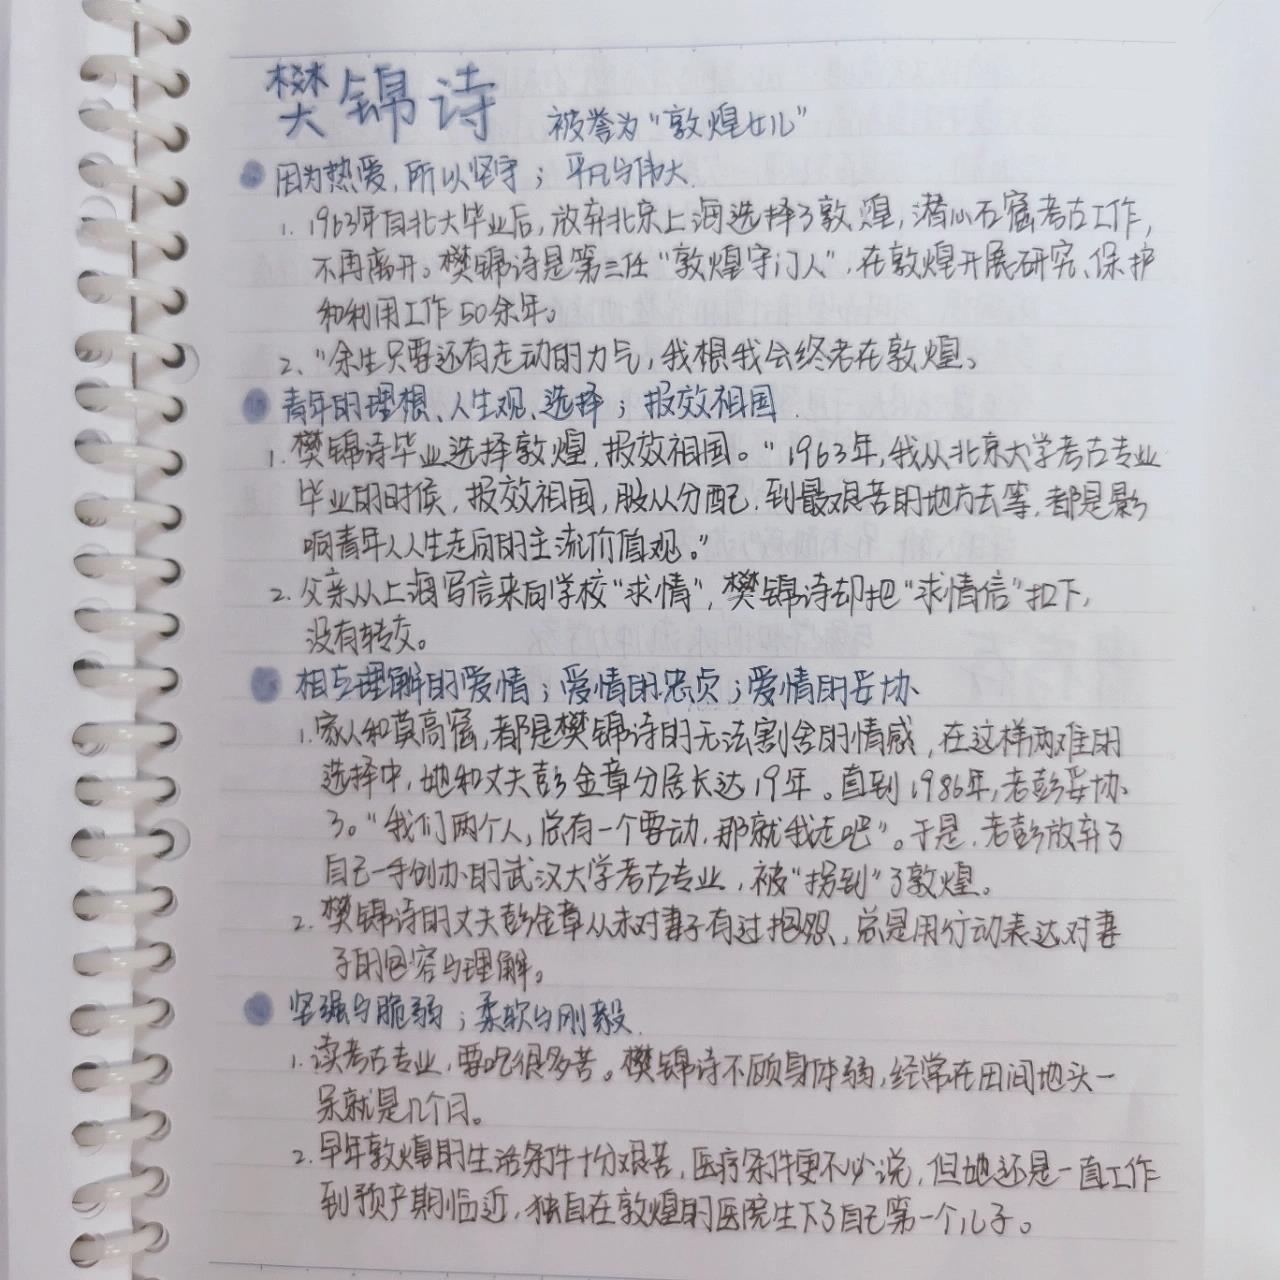 樊锦诗 被誉为“敦煌女儿”
因为热爱,所以坚守;平凡与伟大.
1. 1963年自北大毕业后,放弃北京上海选择了敦煌,潜心石窟考古工作,
不再离开。樊锦诗是第三任“敦煌守门人”,在敦煌开展研究、保护
和利用工作50余年。
2. “余生只要还有走动的力气,我想我会终老在敦煌。
青年的理想、人生观、选择;报效祖国.
1. 樊锦诗毕业选择敦煌,报效祖国。“1963年,我从北京大学考古专业
毕业的时候,报效祖国,服从分配,到最艰苦的地方去等,都是影
响青年人人生走向的主流价值观。”
2. 父亲从上海写信来向学校“求情”,樊锦诗却把“求情信”扣下,
没有转交。
相互理解的爱情;爱情的忠贞;爱情的妥协
1. 家人和莫高窟,都是樊锦诗的无法割舍的情感,在这样两难的
选择中,她和丈夫彭金章分居长达19年。直到1986年,老彭妥协
了。“我们两个人,总有一个要动,那就我走吧”。于是,老彭放弃了
自己一手创办的武汉大学考古专业,被“拐到”了敦煌。
2. 樊锦诗的丈夫彭金章从未对妻子有过抱怨,总是用行动表达对妻
子的包容与理解。
坚强与脆弱;柔软与刚毅.
1. 读考古专业,要吃很多苦。樊锦诗不顾身体弱,经常在田间地头一
呆就是几个月。
2. 早年敦煌的生活条件十分艰苦,医疗条件更不必说,但她还是一直工作
到预产期临近,独自在敦煌的医院生下了自己第一个儿子。